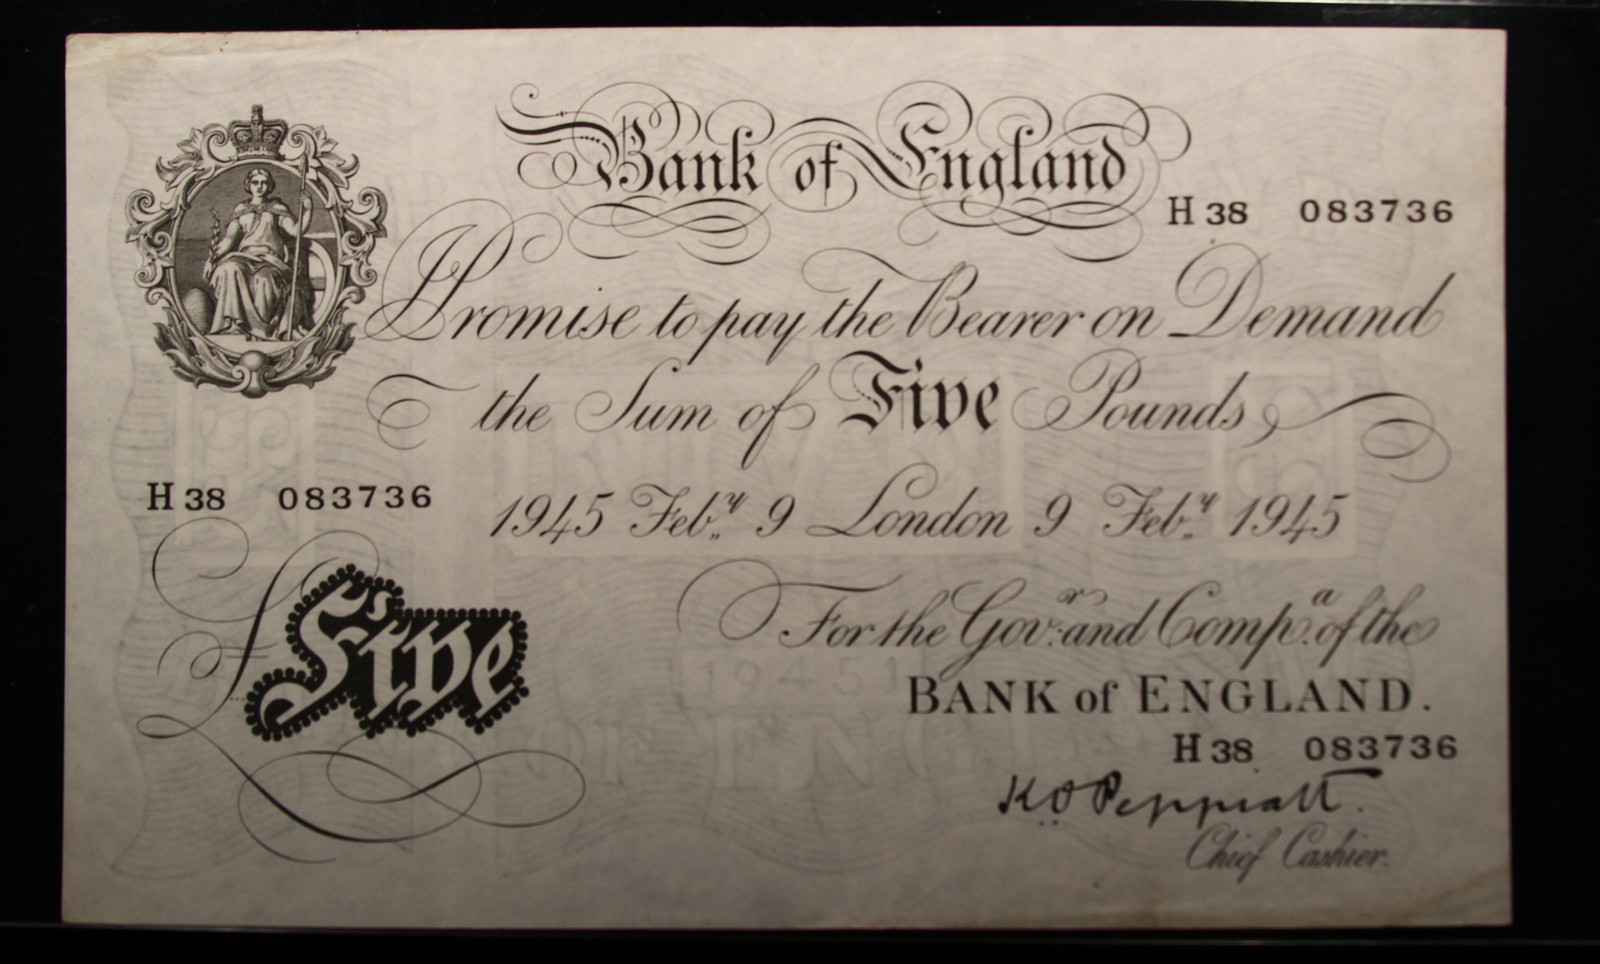 Bank of England
H 38 083736
I Promise to pay the Bearer on Demand
the Sum of Five Pounds
H 38 083736
1945 Feb.y 9 London 9 Feb.y 1945
£ Five
For the Gov.r and Comp.a of the
BANK of ENGLAND.
H 38 083736
K O Peppiatt.
Chief Cashier.